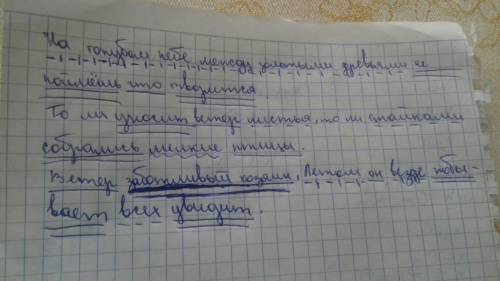 На голубом небе между золотыми деревьями не
поймёшь что творится.
То ли уносит ветер листья, то ли стайками
собрались мелкие птицы.
Ветер заботливый хозяин. Летом он везде побы-
вает всех увидит.